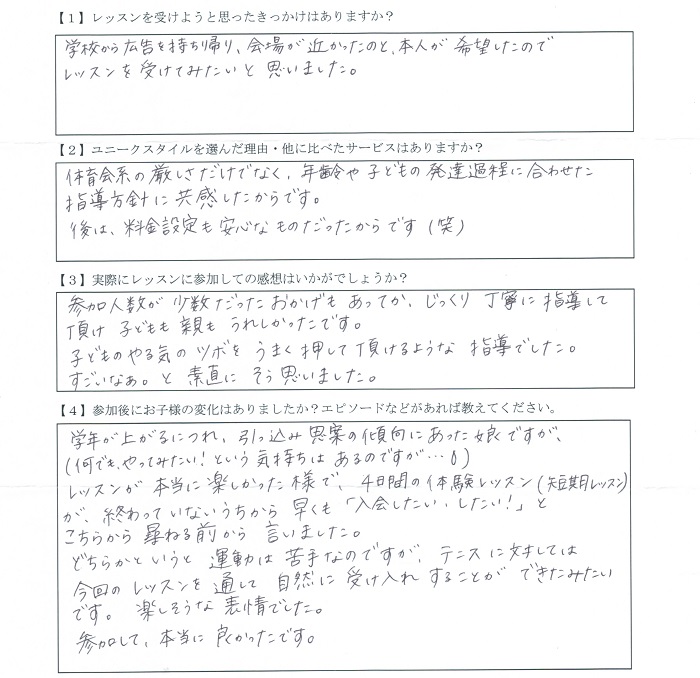 【1】レッスンを受けようと思ったきっかけはありますか？
学校から広告を持ち帰り、会場が近かったのと、本人が希望したので
レッスンを受けてみたいと思いました。
【2】ユニークスタイルを選んだ理由・他に比べたサービスはありますか？
体育会系の厳しさだけでなく、年齢や子どもの発達過程に合わせた
指導方針に共感したからです。
後は、料金設定も安心なものだったからです（笑）
【3】実際にレッスンに参加しての感想はいかがでしょうか？
参加人数が少数だったおかげもあってか、じっくり丁寧に指導して
頂け子どもも親もうれしかったです。
子どものやる気のツボをうまく押して頂けるような指導でした。
すごいなぁ。と素直にそう思いました。
【4】参加後にお子様の変化はありましたか？エピソードなどがあれば教えてください。
学年が上がるにつれ、引っ込み思案の傾向にあった娘ですが、
（何でも、やってみたい！という気持ちはあるのですが…）
レッスンが本当に楽しかった様で、4日間の体験レッスン（短期レッスン）
が、終わっていないうちから早くも「入会したい、したい！」と
こちらから尋ねる前から言いました。
どちらかというと運動は苦手なのですが、テニスに対しては
今回のレッスンを通して自然に受け入れすることができたみたい
です。楽しそうな表情でした。
参加して、本当に良かったです。